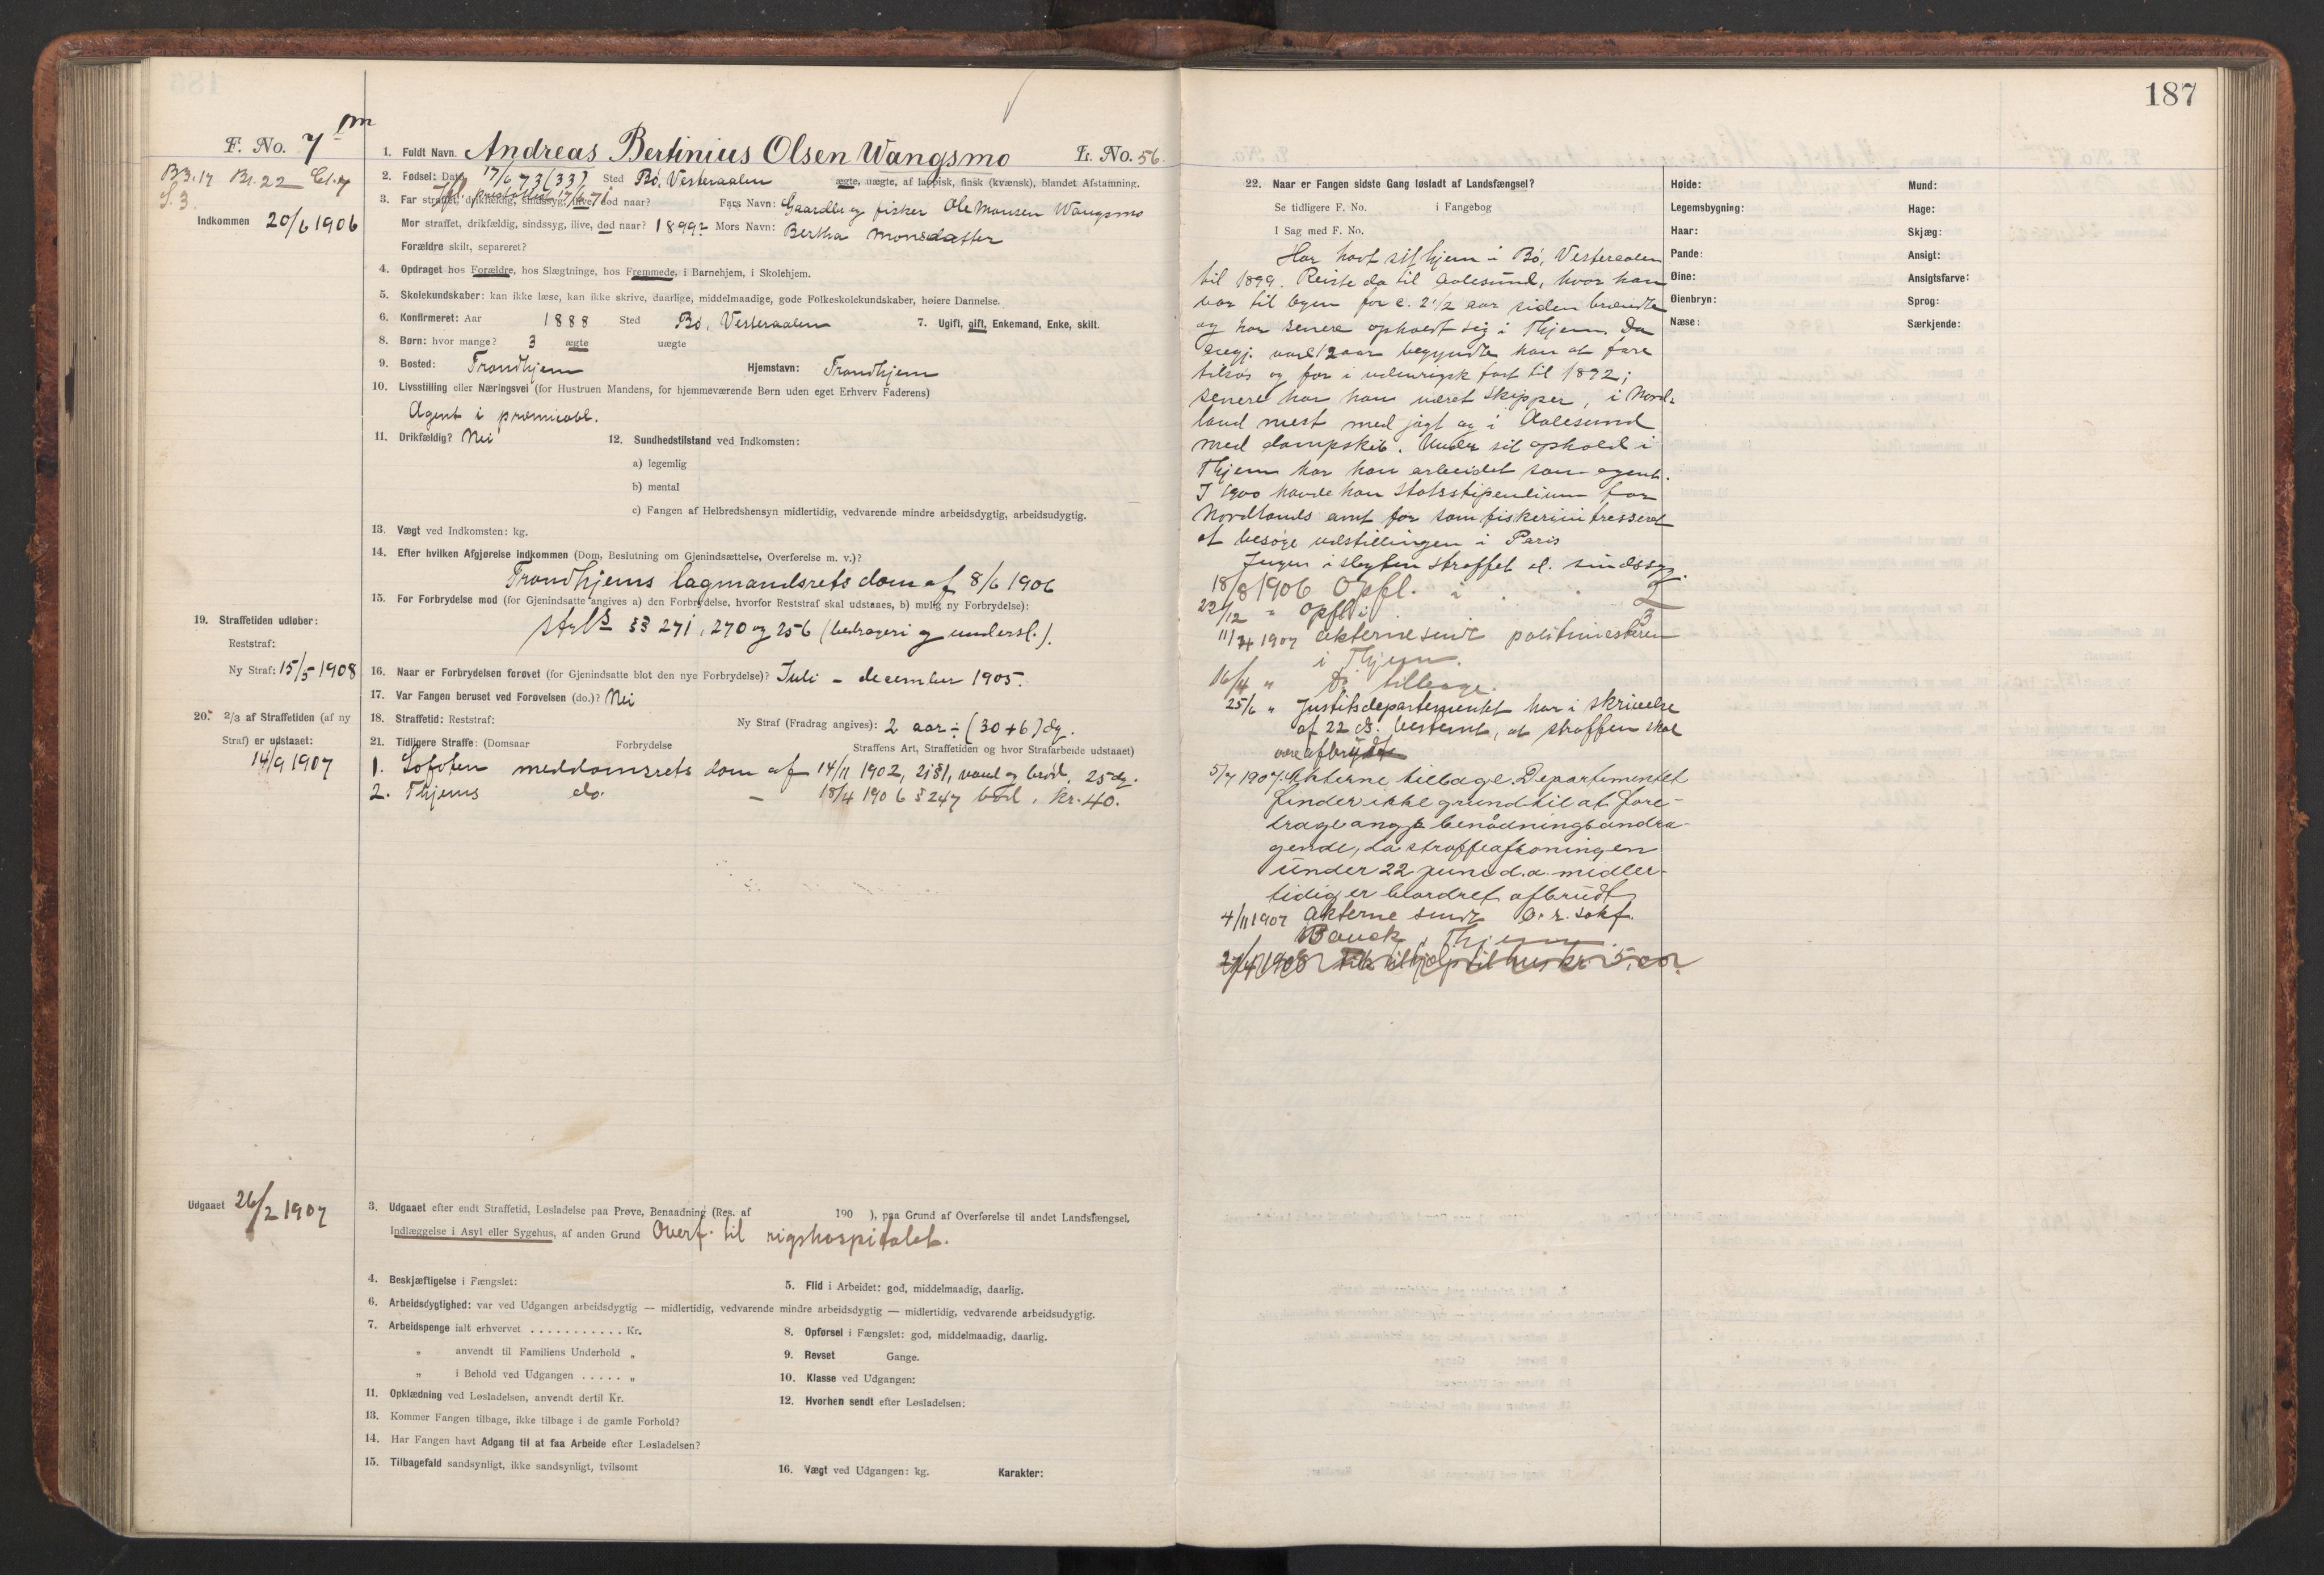 187
F. No. 7 m
B3.17 Bl.22 Cl.7
S.3.
Indkommen 20/6 1906
1. Fuldt Navn. Andreas Bertinius Olsen Wangsmo L. No. 56.
2. Fødsel: Dato 17/6 73 (33) Sted Bø, Vesteraalen ægte, uægte, af lappisk, finsk (kvænsk), blandet Afstamning.
Ifl. 17/6 71
3. Far straffet, drikfældig, sindssyg, ilive, død naar? Fars Navn: Gaardbr. og fisker Ole Monsen Wangsmo
Mor straffet, drikfældig, sindssyg, ilive, død naar? 1899? Mors Navn: Bertha Monsdatter
Forældre skilt, separeret?
4. Opdraget hos Forældre, hos Slægtninge, hos Fremmede, i Barnehjem, i Skolehjem.
5. Skolekundskaber: kan ikke læse, kan ikke skrive, daarlige, middelmaadige, gode Folkeskolekundskaber, høiere Dannelse.
6. Konfirmeret: Aar 1888 Sted Bø, Vesteraalen 7. Ugift, gift, Enkemand, Enke, skilt.
8. Børn: hvor mange? 3 ægte uægte
9. Bosted: Trondhjem Hjemstavn: Trondhjem
10. Livsstilling eller Næringsvei (for Hustruen Mandens, for hjemmeværende Børn uden eget Erhverv Faderens)
Agent i præmieobl.
11. Drikfældig? Nei 12. Sundhedstilstand ved Indkomsten:
a) legemlig
b) mental
c) Fangen af Helbredshensyn midlertidig, vedvarende mindre arbeidsdygtig, arbeidsudygtig.
13. Vægt ved Indkomsten: kg.
14. Efter hvilken Afgjørelse indkommen (Dom, Beslutning om Gjenindsættelse, Overførelse m. v.)?
Trondhjems lagmandsrets dom af 8/6 1906
15. For Forbrydelse mod (for Gjenindsatte angives a) den Forbrydelse, hvorfor Reststraf skal udstaaes, b) mulig ny Forbrydelse):
Strl's §§ 271, 270 og 256 (bedrageri og undersl.).
19. Straffetiden udløber:
Reststraf:
Ny Straf: 15/5 1908
16. Naar er Forbrydelsen forøvet (for Gjenindsatte blot den nye Forbrydelse)? Juli - december 1905.
17. Var Fangen beruset ved Forøvelsen (do.)? Nei
20. 2/3 af Straffetiden (af ny
Straf) er udstaaet:
14/9 1907
18. Straffetid: Reststraf: Ny Straf (Fradrag angives): 2 aar ÷ (30+6) dg.
21. Tidligere Straffe: (Domsaar Forbrydelse Straffens Art, Straffetiden og hvor Strafarbeide udstaaet)
1. Lofoten meddomsrets dom af 14/11 1902, 21 § 1, vand og brød, 25 dg.
2. Thjems do. - 18/4 1906 § 247 bød. kr. 40.
Udgaaet 26/2 1907
3. Udgaaet efter endt Straffetid, Løsladelse paa Prøve, Benaadning (Res. af 190 ), paa Grund af Overførelse til andet Landsfængsel,
Indlæggelse i Asyl eller Sygehus, af anden Grund Overf. til rigshospitalet.
4. Beskjæftigelse i Fængslet: 5. Flid i Arbeidet: god, middelmaadig, daarlig.
6. Arbeidsdygtighed: var ved Udgangen arbeidsdygtig — midlertidig, vedvarende mindre arbeidsdygtig — midlertidig, vedvarende arbeidsudygtig.
7. Arbeidspenge ialt erhvervet . . . . . . . . . . . Kr. 8. Opførsel i Fængslet: god, middelmaadig, daarlig.
„ anvendt til Familiens Underhold „ 9. Revset Gange.
„ i Behold ved Udgangen . . . . . „ 10. Klasse ved Udgangen:
11. Opklædning ved Løsladelsen, anvendt dertil Kr. 12. Hvorhen sendt efter Løsladelsen:
13. Kommer Fangen tilbage, ikke tilbage i de gamle Forhold?
14. Har Fangen havt Adgang til at faa Arbeide efter Løsladelsen?
15. Tilbagefald sandsynligt, ikke sandsynligt, tvilsomt 16. Vægt ved Udgangen: kg. Karakter:
22. Naar er Fangen sidste Gang løsladt af Landsfængsel?
Se tidligere F. No. i Fangebog
I Sag med F. No.
Har havt sit hjem i Bø, Vesteraalen
til 1899. Reiste da til Aalesund, hvor han
var til byen for c. 2 1/2 aar siden brændte
og har senere opholdt sig i Thjem. Da
angj. var 12 aar begyndte han at fare
tilsøs og for i udenrigsk fart til 1892;
senere har han været skipper, i Nord-
land mest med jagt og i Aalesund
med dampskib. Under sit ophold i
Thjem har han arbeidet som agent.
I 1900 havde han Statsstipendium fra
Nordlands amt for som fiskeriinteresseret
at besøge udstillingen i Paris
Ingen i slegten straffet el. sindssyg.
18/8 1906 Opfl. " . . 2
22/12 " Opfl. i 3
11/4 1907 Akterne sendt politimesteren
i Thjem.
16/4 " Do tilbage.
25/6 " Justitsdepartementet har i skrivelse
af 22 ds. bestemt, at straffen skal
være afbrudt
5/7 1907. Akterne tilbage. Departementet
finder ikke grund til at fore-
trage angj's benådningsandra-
gende, da straffeafsoningen
under 22 juni d.a. midler-
tidig er beordret afbrudt
4/11 1907 Akterne sendt o.r.sakf.
Bauck, Thjem.
27/4 1908 Fik til hjælp til hus kr. 5,00.
Høide: Mund:
Legemsbygning: Hage:
Haar: Skjæg:
Pande: Ansigt:
Øine: Ansigtsfarve:
Øienbryn: Sprog:
Næse: Særkjende: